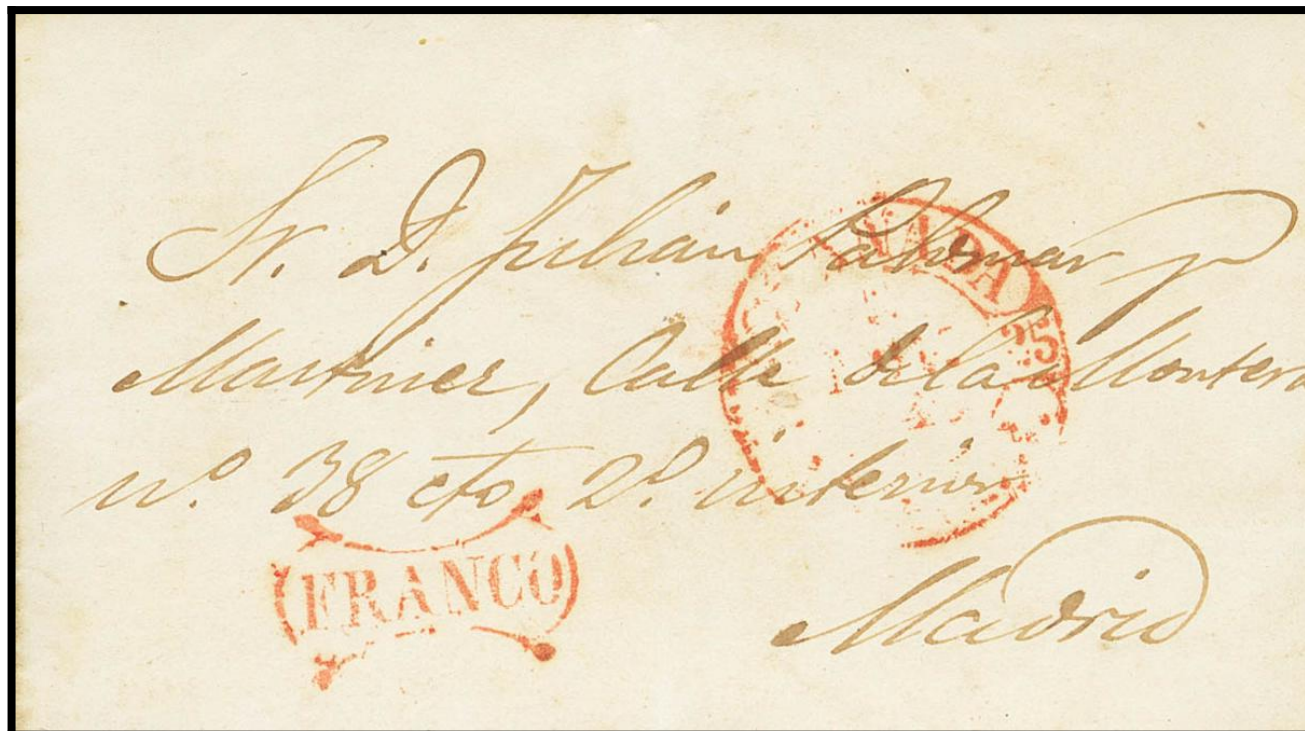 Sr. D. Julian Palomar y
Martinez, Calle de la Montera
nº 38 cto 2º interior
Madrid
NADA
25
FRANCO